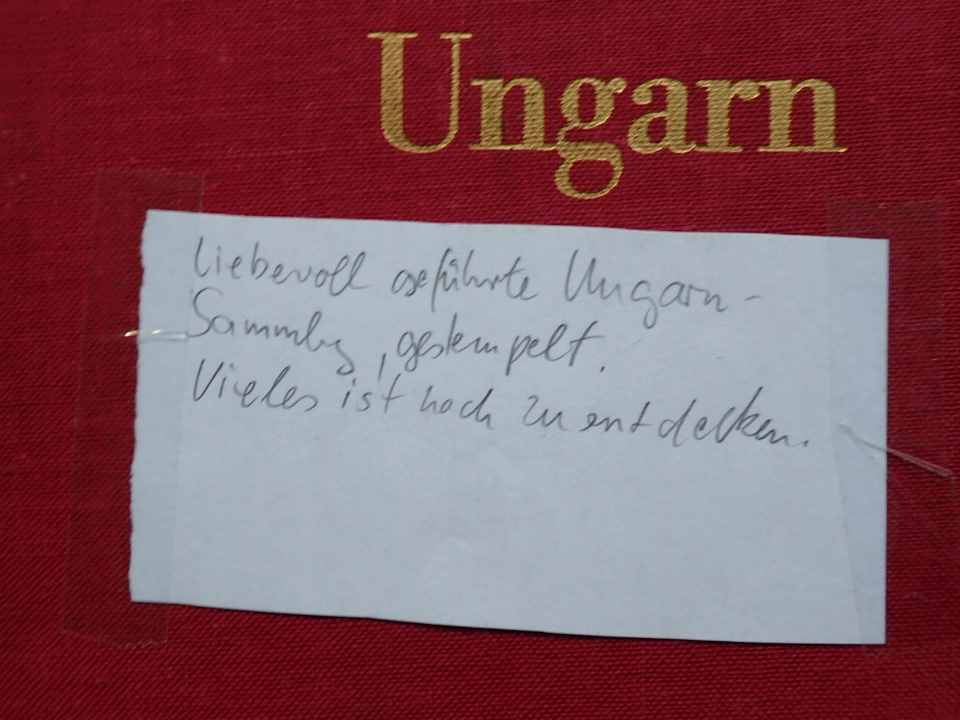 Ungarn
Liebevoll geführte Ungarn-
Sammlg, gestempelt.
Vieles ist noch zu entdecken.